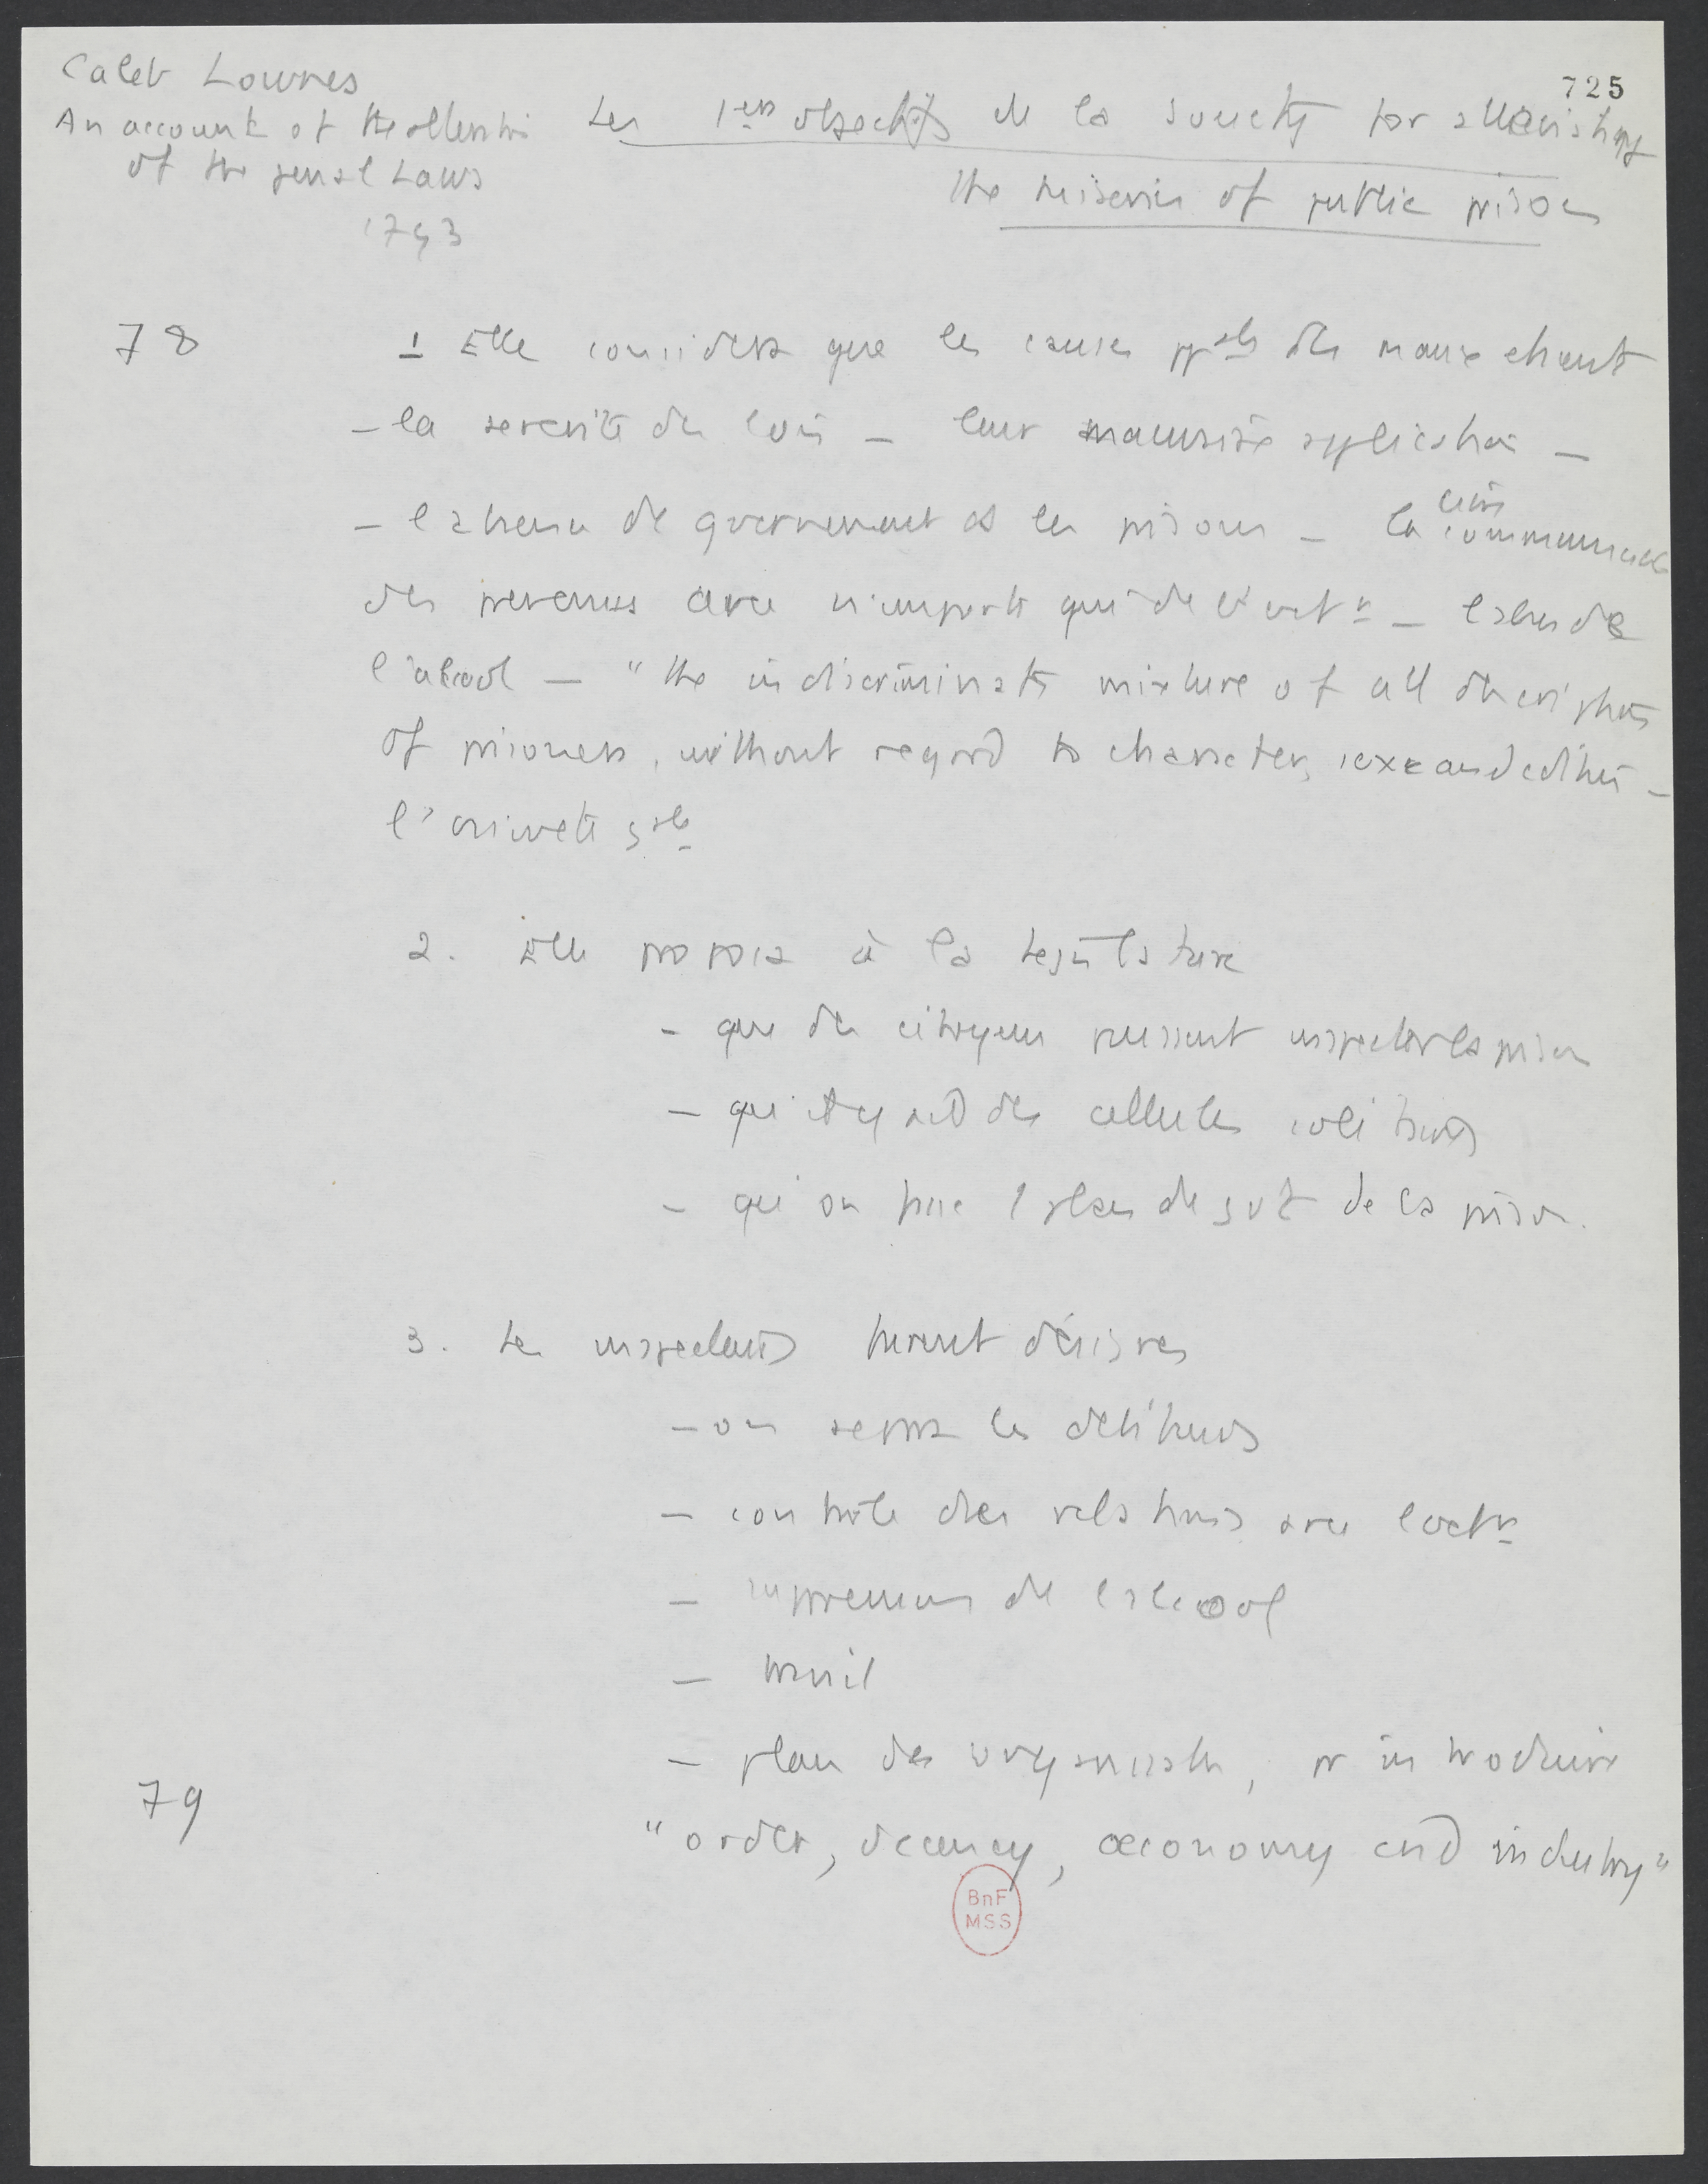 725
Caleb Lownes
An account of the alteration
of the penal Laws
1793
Les 1ers objectifs de la Society for alleviating
the miseries of public prisons
78
1 Elle considera que les causes ppales des maux etaient
- la severité des lois - leur mauvaise application -
- l absence de gouvernement ds les prisons - la communication
des prevenus avec n'importe qui de l'extr - l abus de
l'alcool - "the indiscriminate mixture of all descriptions
of prisoners, without regard to character, sexe and condition -
l'oisiveté gale
2. Elle proposa à la legislature
- que des citoyens puissent inspecter la prison
- qu'il y ait des cellules solitaires
- qu'on fasse 1 plan de gvt de la prison.
3. Les inspecteurs furent désignes
- on separa les detenus
- controle des relations avec l extr
- suppression de l alcool
- travail
- plan des organisate, pr introduire
79
"order, decency, oeconomy and industry"
BnF
MSS